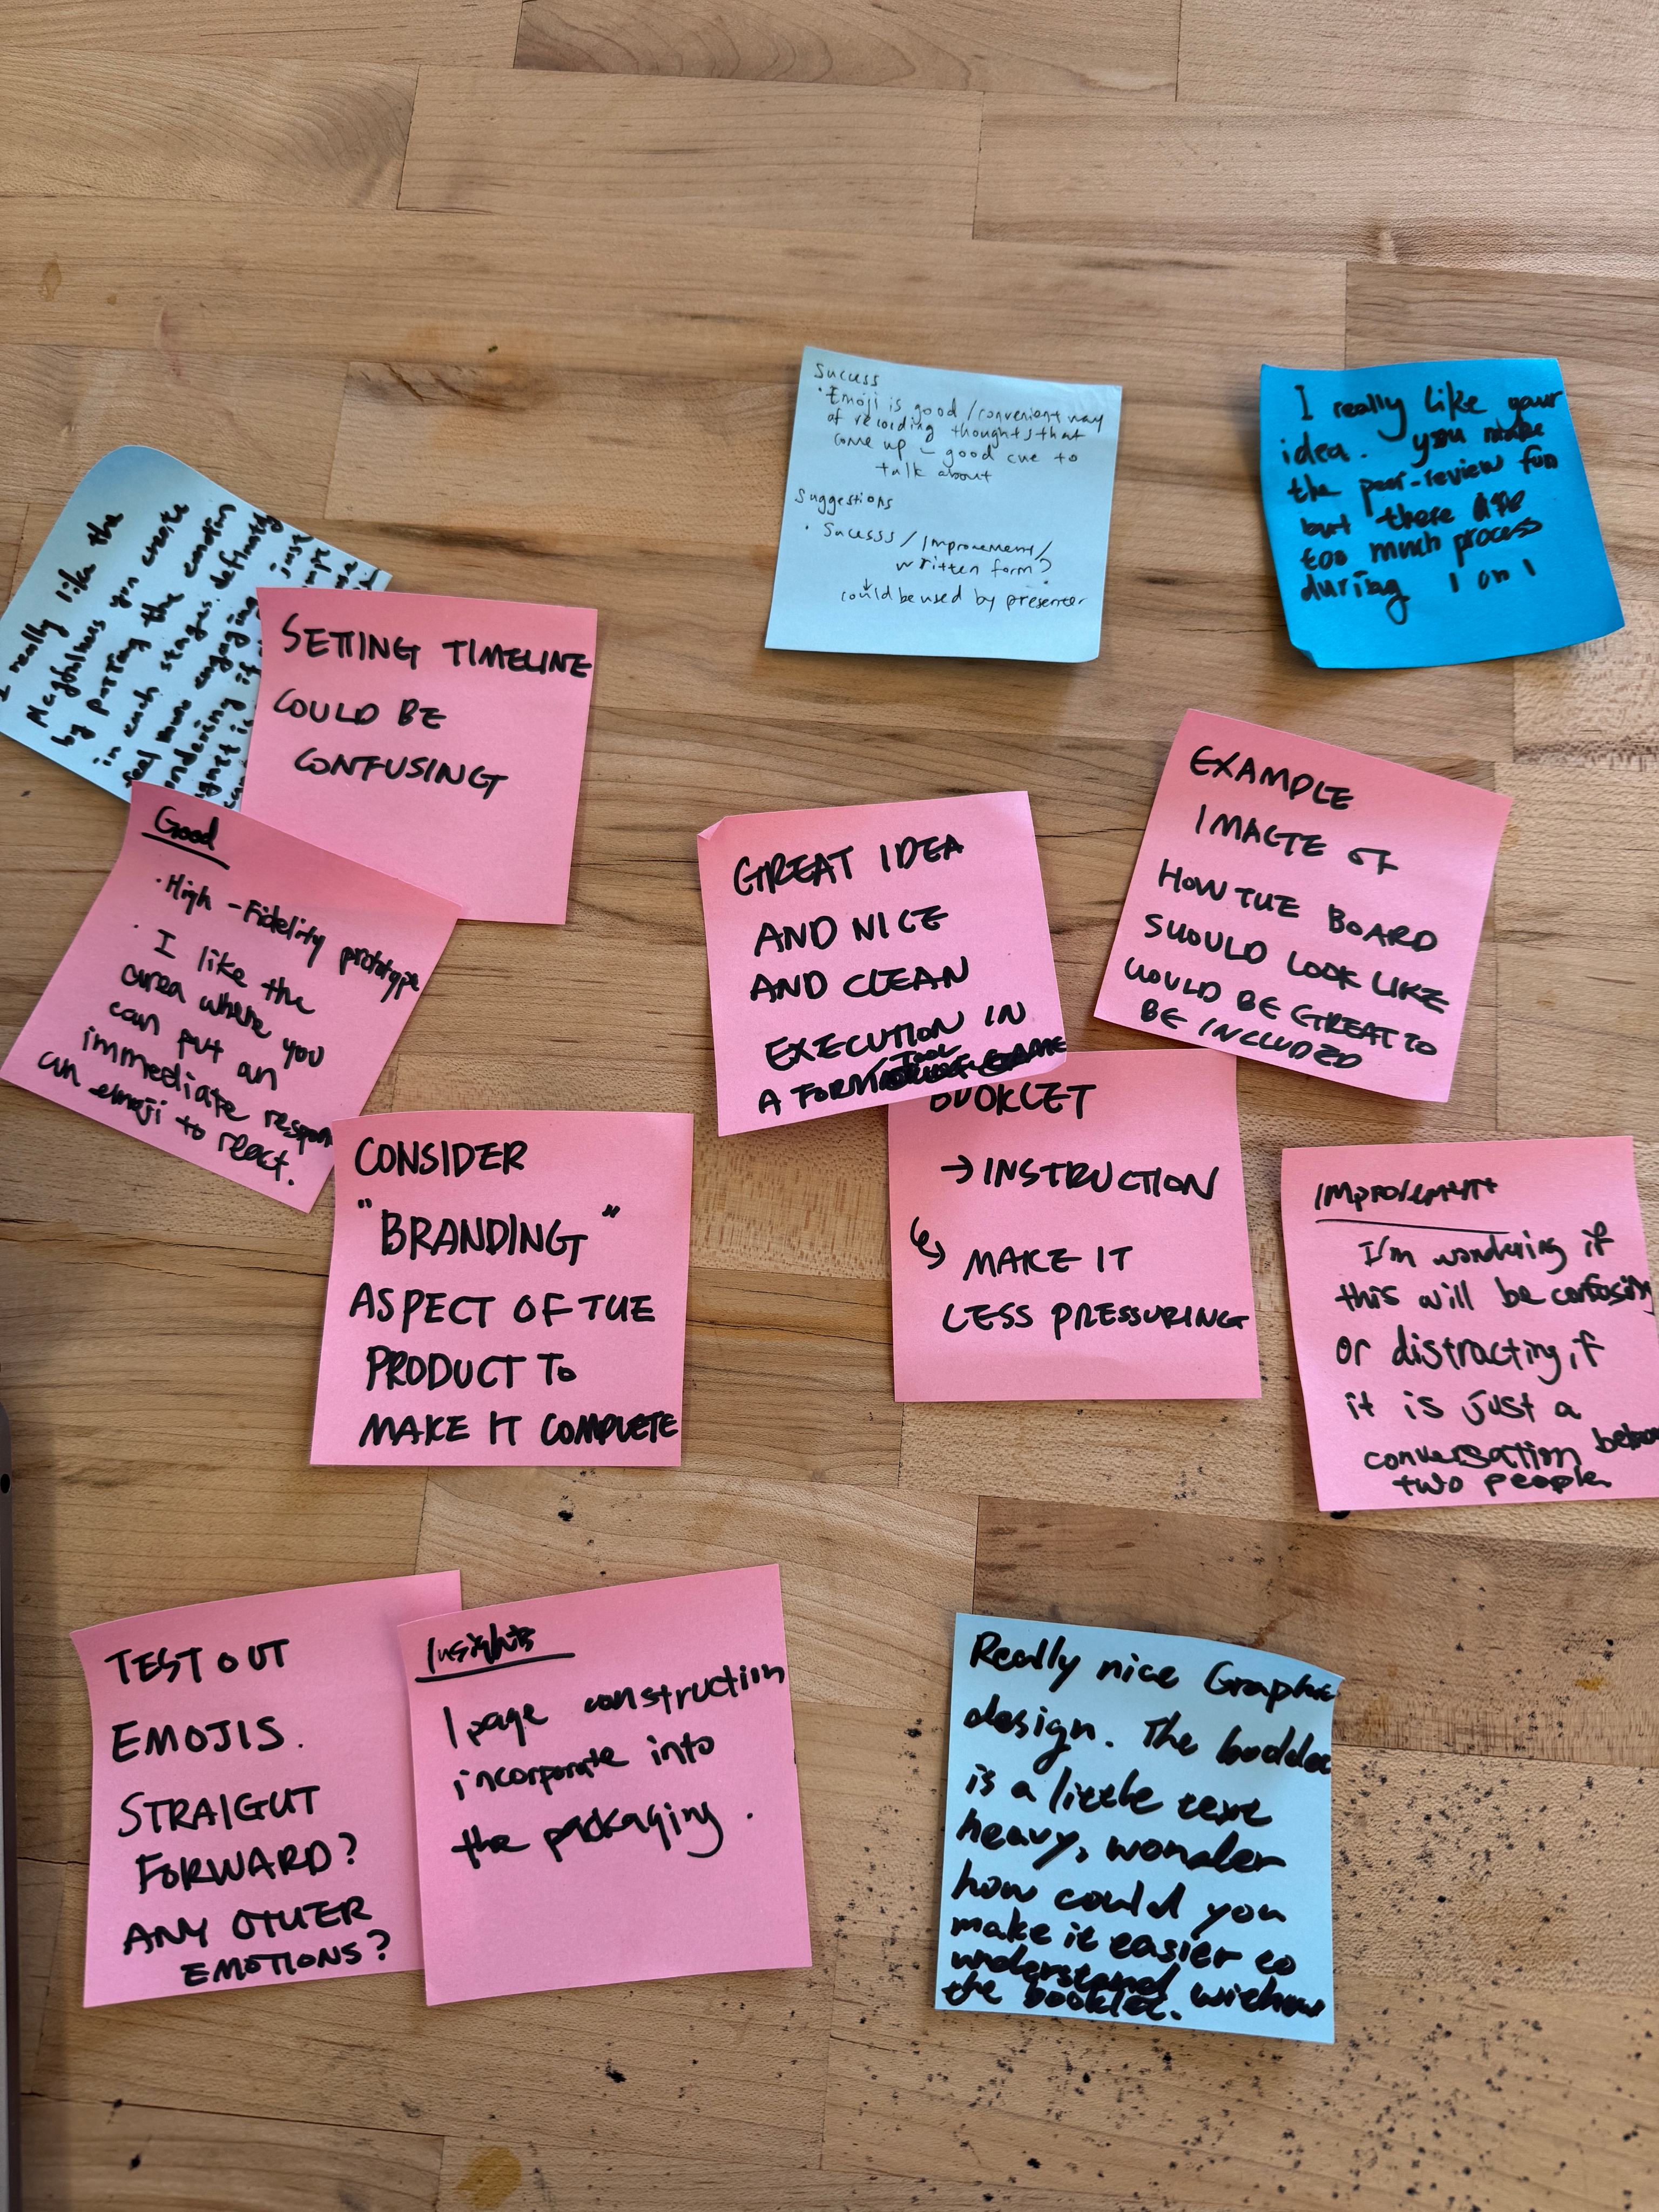 Success
· Emoji is good / convenient way
of recording thoughts that
come up – good cue to
talk about
Suggestions
· Sucesss / Improvement /
written form?
↓
could be used by presenter
I really like your
idea. you make
the peer-review fun
but there are
too much process
during 1 on 1
I really like the
Playfulness you create
by putting the emotion
in each stages. definitely
feel more engaging. just
ondering if
SETTING TIMELINE
COULD BE
CONFUSING
Good
· High-Fidelity prototype
· I like the
area where you
can put an
immediate respon
an emoji to react.
GREAT IDEA
AND NICE
AND CLEAN
EXECUTION IN
TOOL
A FORM
EXAMPLE
IMAGE OF
HOW THE BOARD
SHOULD LOOK LIKE
WOULD BE GREAT TO
BE INCLUDED
BOOKLET
→ INSTRUCTION
↳ MAKE IT
LESS PRESSURING
CONSIDER
"BRANDING"
ASPECT OF THE
PRODUCT TO
MAKE IT COMPLETE
Improvement
I'm wondering if
this will be confusing
or distracting, if
it is just a
conversation
two people
TEST OUT
EMOJIS.
STRAIGHT
FORWARD?
ANY OTHER
EMOTIONS?
Insights
1 page construction
incorporate into
the packaging.
Really nice Graphic
design. The
is a little text
heavy, wonder
how could you
make it easier to
understand withou
the booklet.